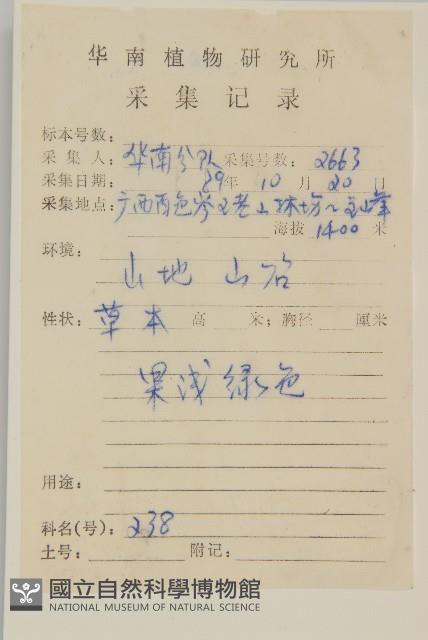 华南植物研究所
采集记录
标本号数:
采集人: 华南分队 采集号数: 2663
采集日期: 89年 10 月 20 日
采集地点: 广西百色岑王老山林场
海拔 1400 米
环境:
山地 山谷
性状: 草本 高 米; 胸径 厘米
果浅绿色
用途:
科名(号): 238
土号: 附记:
國立自然科學博物館
NATIONAL MUSEUM OF NATURAL SCIENCE